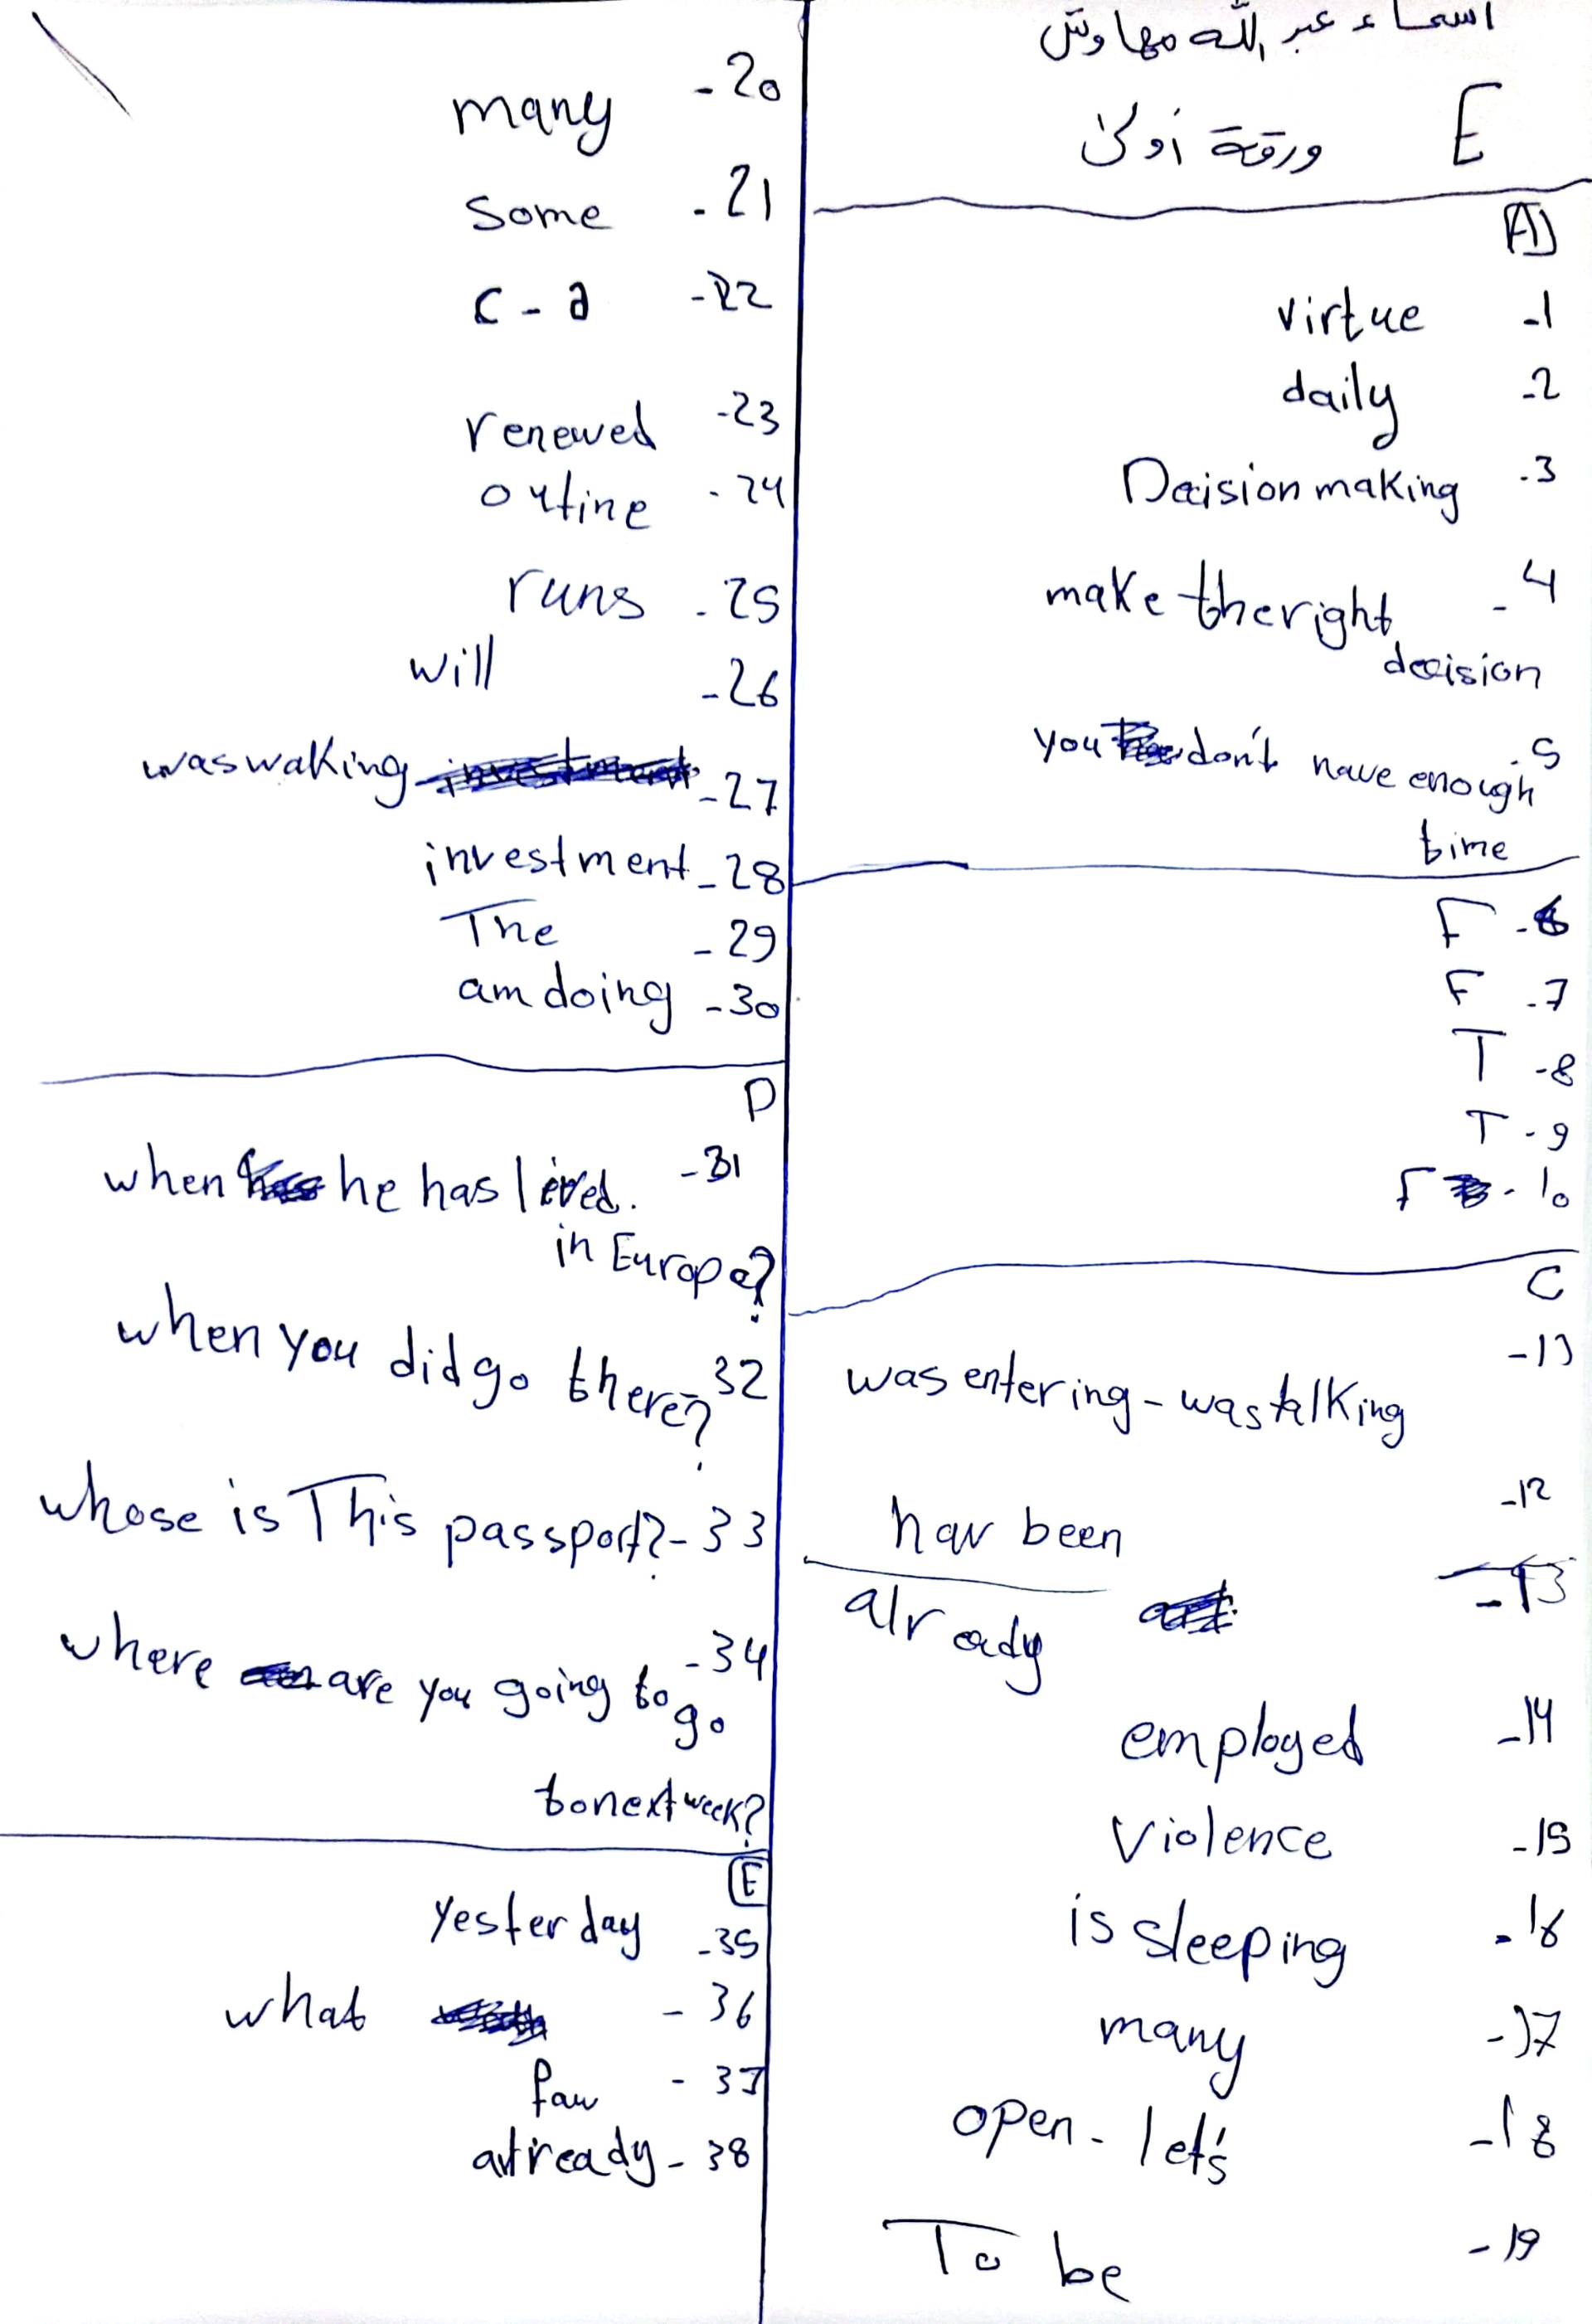 اسماء عبد الله مهاوش
E ورقة أولى
A
1- virtue
2- daily
3- Decision making
4- make the right
decision
5- you don't have enough
time
6- F
7- F
8- T
9- T
10- F
C
11-
was entering - was talking
12-
hav been
13- already
14- employed
15- violence
16- is sleeping
17- many
18- open - let's
19- To be
20- many
21- some
22- c - a
23- renewed
24- outine
25- runs
26- will
27- was waking
28- investment
29- The
30- am doing
D
31- when he has lived.
in Europe?
32- when you did go there?
33- whose is This passport?
34- where are you going to
go
to next week?
E
35- yesterday
36- what
37- faw
38- already